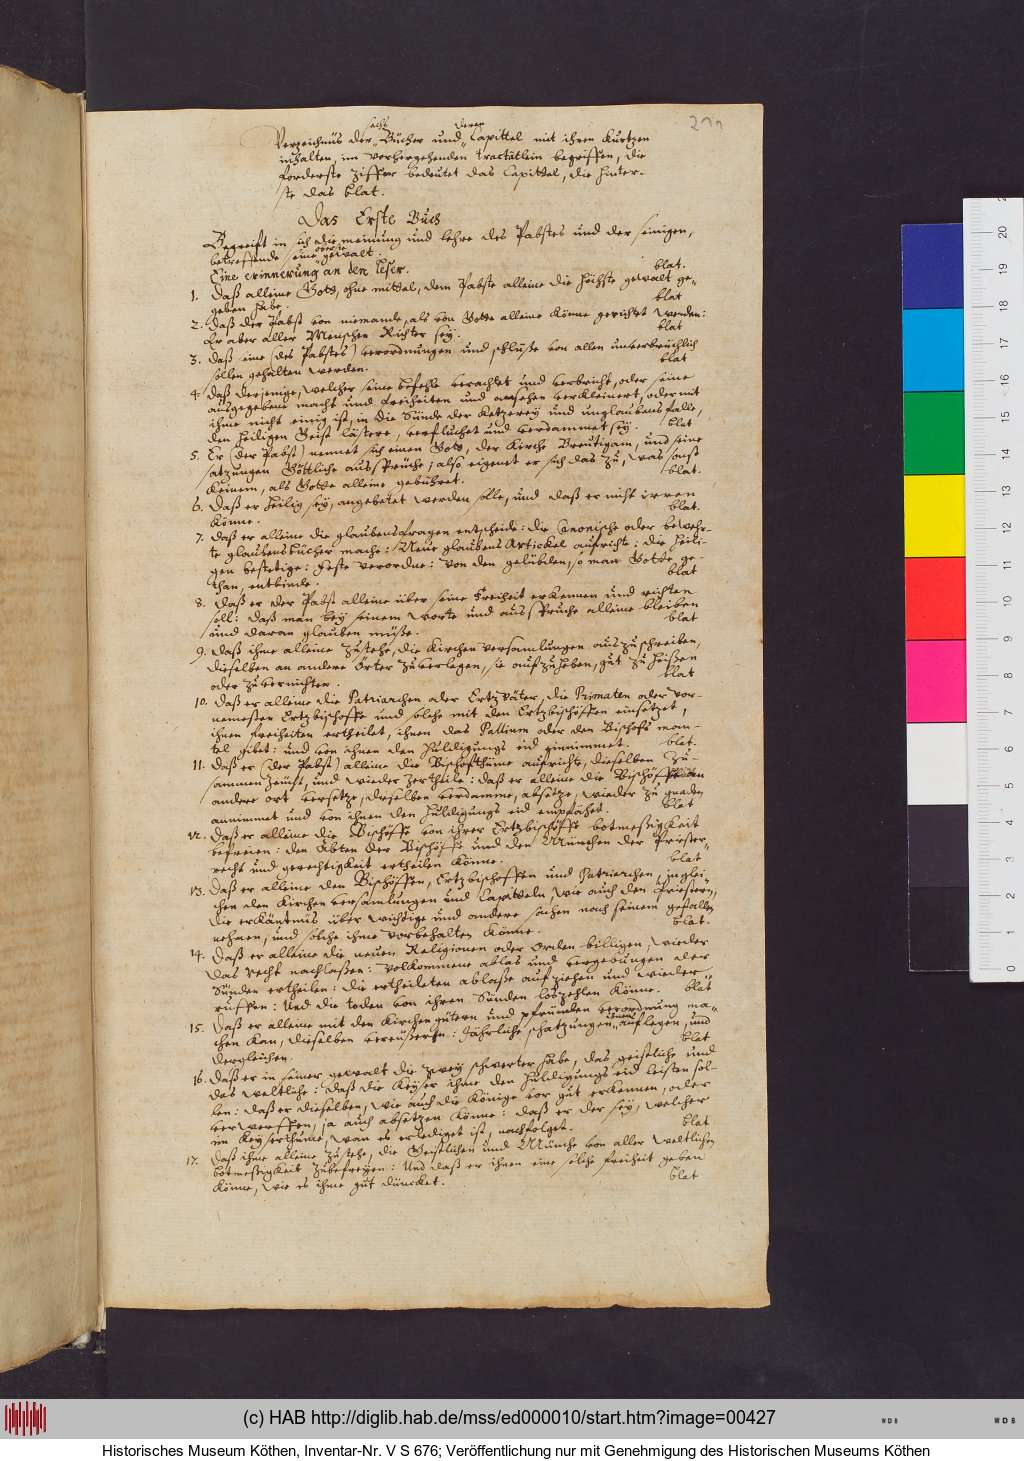 211
sechs deren
Verzeichnüs der Bücher und Capittel mit ihren kurtzen
inhalten, im vorhergehenden tractätlein begriffen, die
forderste ziffer bedeütet das Capittel, die hinter-
ste das blat.
Das Erste Buch
Begreift in sich die meinung und lehre des Pabstes und der seinigen,
betreffende seine gewalt.
Eine erinnerung an den leser. blat.
1. Daß alleine Gott, ohne mittel, dem Pabste alleine die höchste gewalt ge-
geben habe. blat
2. Daß der Pabst von niemande, als von Gotte alleine könne gerichtet werden:
Er aber aller Menschen Richter sey. blat
3. Daß eine (des Pabstes) verordnungen und schlüße von allen unverbrüchlich
sollen gehalten werden. blat
4. Daß derjenige, welcher seine befehle verachtet und verbricht, oder seine
ausgegebene macht und freiheiten und ansehen verkleinert, oder mit
ihme nicht einig ist, in die Sünde der Ketzerey und unglaubens falle,
den heiligen Geist lästere, verfluchet und verdammet sey. blat
5. Er (der Pabst) nennet sich einen Gott, der Kirche Breutigam, und seine
satzungen Göttliche aussprüche; also eigenet er sich das zu, was sonst
keinem, als Gotte alleine gebühret. blat.
6. Daß er heilig sey, angebetet werden solle, und daß er nicht irren
könne. blat.
7. Daß er alleine die glaubensfragen entscheide: die Canonische oder bewehr-
te glaubensbücher mache: Neue glaubens Artickel aufrichte: die heili-
gen bestetige: Feste verordne: von den gelübden, so man Gotte ge-
than, entbinde. blat
8. Daß er der Pabst alleine über seine freiheit erkennen und richten
soll: daß man bey seinem worte und ausspruche alleine bleiben
und daran glauben müße. blat
9. Daß ihme alleine zustehe, die Kirchen versamlungen auszuschreiben,
dieselben an andere örter zuverlegen, sie aufzuheben, gut zu heißen
oder zuvernichten. blat
10. Daß er alleine die Patriarchen oder Ertzväter, die Primaten oder vor-
nemesten Ertzbischoffe und solche mit den Ertzbischöffen einsetzet,
ihnen freiheiten ertheilet, ihnen das Pallium oder den Bischofs man-
tel gibet: und von ihnen den huldigungs eid einnimmet. blat.
11. Daß er (der Pabst) alleine die Bischofthüme aufricht, dieselben zu-
sammen zeücht, und wieder zertheile: daß er alleine die Bischöffe an
andere ort versetze, dieselben verdamme, absetze, wieder zu gnaden
annimmet und von ihnen den huldigungs eid empfähet. blat
12. Daß er alleine die Bischöffe von ihrer Ertzbischöffe botmeßigkeit
befreien: den Äbten der Bischöffe und den München der Priester-
recht und gerechtigkeit ertheilen könne. blat
13. Daß er alleine den Bischöffen, Ertzbischoffen und Patriarchen, inglei-
chen den Kirchenversamlungen und Capitteln, wie auch den Priestern,
die erkäntnüs über wichtige und andere sachen nach seinem gefallen
nehmen, und solche ihme vorbehalten könne. blat.
14. Daß er alleine die neuen Religionen oder Orden billigen, wieder
das recht nachlaßen: volkommene ablas und vergebungen der
Sünden ertheilen: die ertheileten ablaße aufziehen und wieder-
ruffen: Und die toden von ihren Sünden loszehlen könne. blat
15. Daß er alleine mit den Kirchengütern und pfründen verordnung ma-
chen kan, dieselben vereüßern: Jährliche schatzungen auflegen, und
dergleichen. blat
16. Daß er in seiner gewalt die zwey schwerter habe, das geistliche und
das weltliche: daß die Keyser ihme den huldigungs eid leisten sol-
len: daß er dieselben, wie auch die Könige vor gut erkennen, oder
verwerffen, ja auch absetzen könne: daß er der sey, welcher
im Keyserthume, wan es erlediget ist, nachfolget. blat
17. Daß ihme alleine zustehe, die Geistlichen und Münche von aller weltlichen
botmeßigkeit zubefreyen: Und daß er ihnen eine solche freiheit geben
könne, wie es ihme gut düncket. blat
(c) HAB http://diglib.hab.de/mss/ed000010/start.htm?image=00427
Historisches Museum Köthen, Inventar-Nr. V S 676; Veröffentlichung nur mit Genehmigung des Historischen Museums Köthen